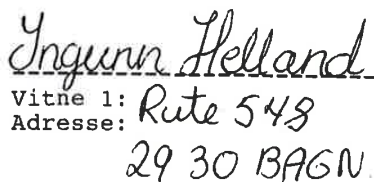 Ingunn Helland
Vitne 1:
Adresse: Rute 548
2930 BAGN